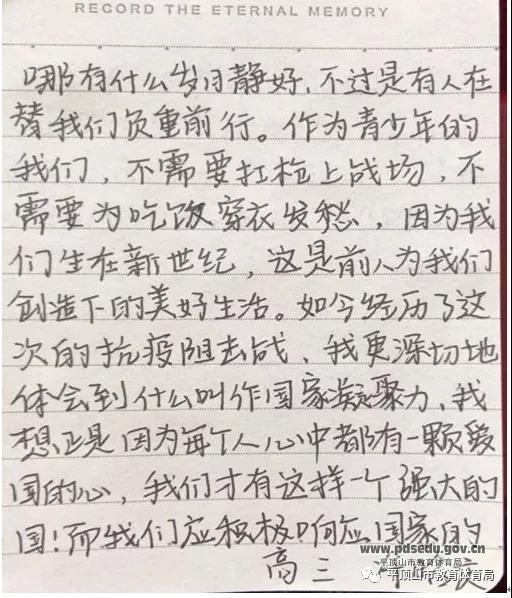 RECORD THE ETERNAL MEMORY
哪有什么岁月静好，不过是有人在
替我们负重前行。作为青少年的
我们，不需要扛枪上战场，不
需要为吃饭穿衣发愁，因为我
们生在新世纪，这是前人为我们
创造下的美好生活。如今经历了这
次的抗疫阻击战，我更深切地
体会到什么叫作国家凝聚力，我
想正是因为每个人心中都有一颗爱
国的心，我们才有这样一个强大的
国！而我们应积极响应国家的
www.pdsedu.gov.cn
平顶山市教育体育局
高三
平顶山市教育体育局